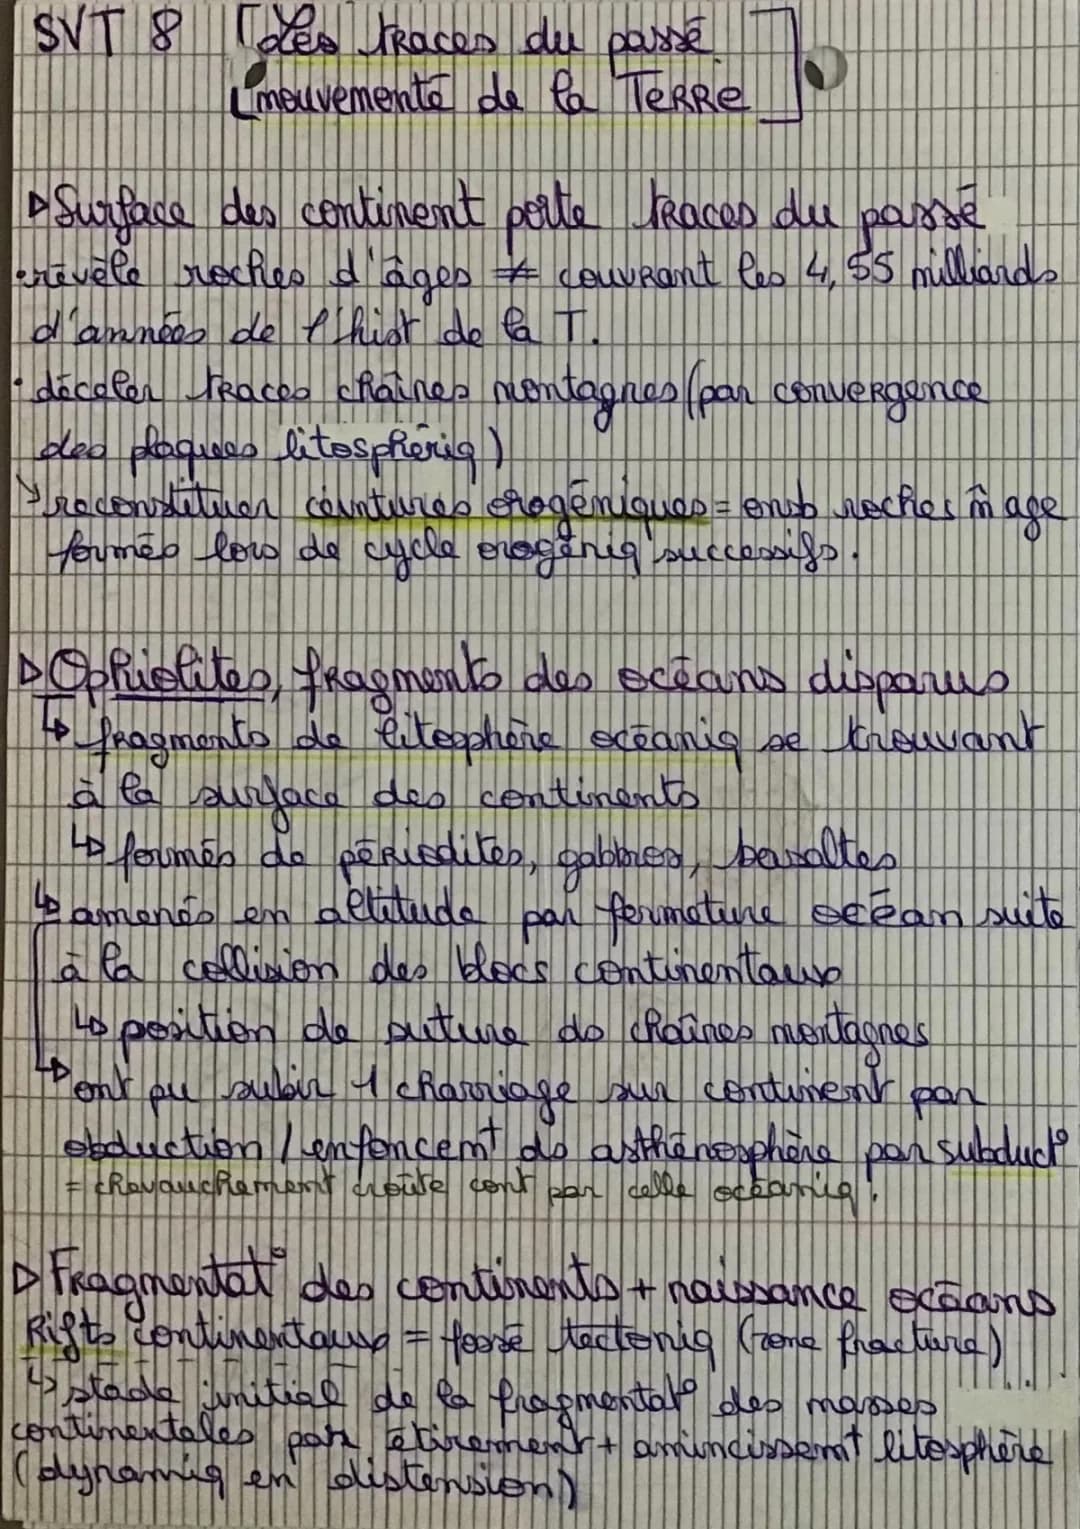 SVT 8 [Les traces du passé
mouvementé de la Terre]
▷ Surface des continent porte traces du passé
• révèle roches d'âges ≠ couvrant les 4,55 milliards
d'années de l'hist de la T.
• déceler traces chaînes montagnes (par convergence
des plaques litosphériq)
↘ reconstituer ceintures orogéniques = ensb roches m̂ age
formés lors de cycle orogéniq successifs.
▷ Ophiolites, fragments des océans disparus
↳ fragments de litosphère océaniq se trouvant
à la surface des continents
↳ formés de périodites, gabbros, basaltes
↳ amenés en altitude par fermeture océan suite
à la collision des blocs continentaux
↳ position de suture do chaînes montagnes
↳ ont pu subir 1 charriage sur continent par
obduction / enfoncemt do asthénosphère par subductº
= chevauchement croûte cont par celle océaniq.
▷ Fragmentatº des continents + naissance océans
Rifts continentaux = fossé tectoniq (zone fracture)
↳ stade initial de la fragmentatº des masses
continentales par étirement + amincissemt litosphère
(dynamiq en distension)